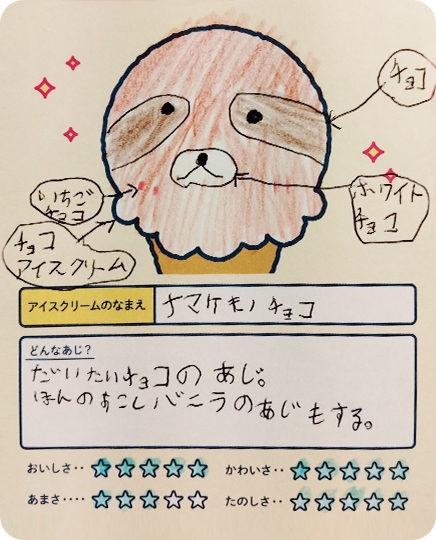 チョコ
いちご
チョコ
ホワイト
チョコ
チョコ
アイスクリーム
アイスクリームのなまえ
ナマケモノチョコ
どんなあじ?
だいたいチョコのあじ。
ほんのすこしバニラのあじもする。
おいしさ‥ ☆☆☆☆☆ かわいさ‥ ☆☆☆☆☆
あまさ‥‥ ☆☆☆☆☆ たのしさ‥ ☆☆☆☆☆